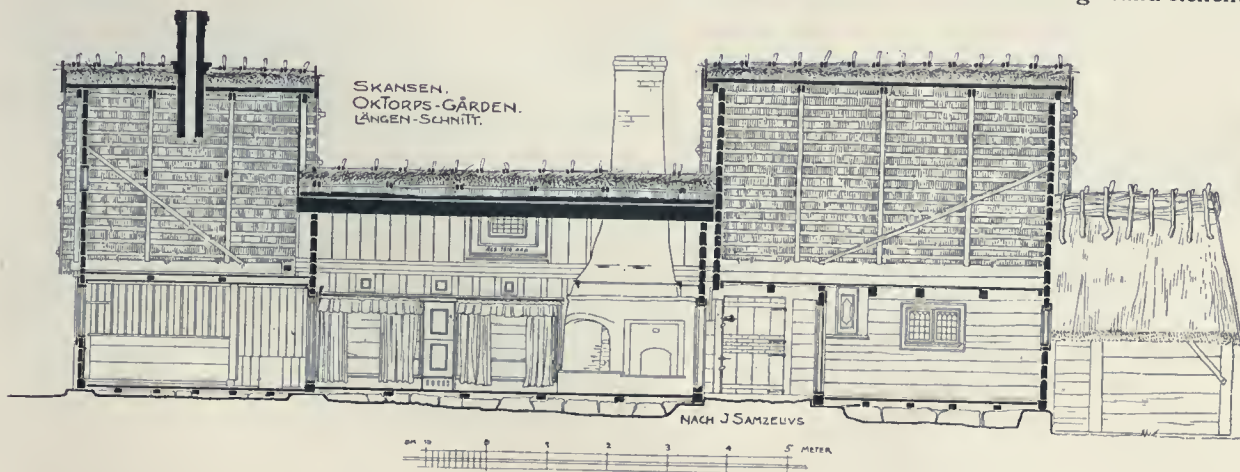 SKANSEN.
OKTORPS-GÅRDEN.
LÄNGEN-SCHNITT.
NACH J SAMZELIVS
DM 10 0 1 2 3 4 5 METER